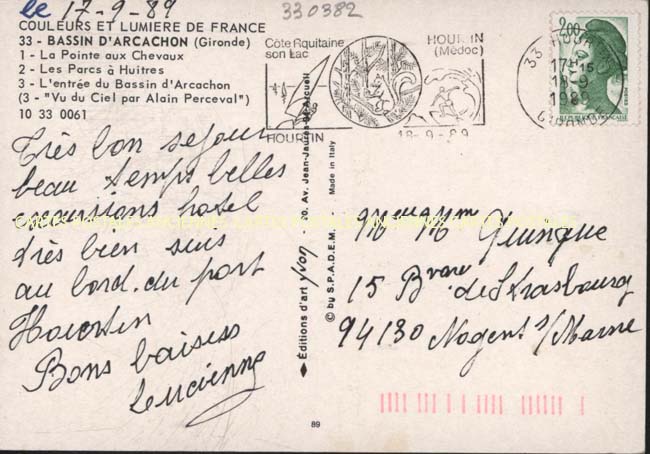 le 17-9-89
330382
COULEURS ET LUMIERE DE FRANCE
33 - BASSIN D'ARCACHON (Gironde)
1 - La Pointe aux Chevaux
2 - Les Parcs à Huitres
3 - L'entrée du Bassin d'Arcachon
(3 - "Vu du Ciel par Alain Perceval")
10 33 0061
Côte Aquitaine
son Lac
HOURTIN
HOURTIN
(Médoc)
18-9-89
2,00
33 HOURTIN
17H15
18-9
1989
GIRONDE
Très bon sejour
beau temps belles
excursions hotel
très bien suis
au bord du port
Hourtin
Bons baisers
Lucienne
Editions d'art yvon 20, Av. Jean-Jaurès Arcueil
© by S.P.A.D.E.M. Made in Italy
Mr Mm
15 Bvard de Strasbourg
94130 Nogent s/Marne
89